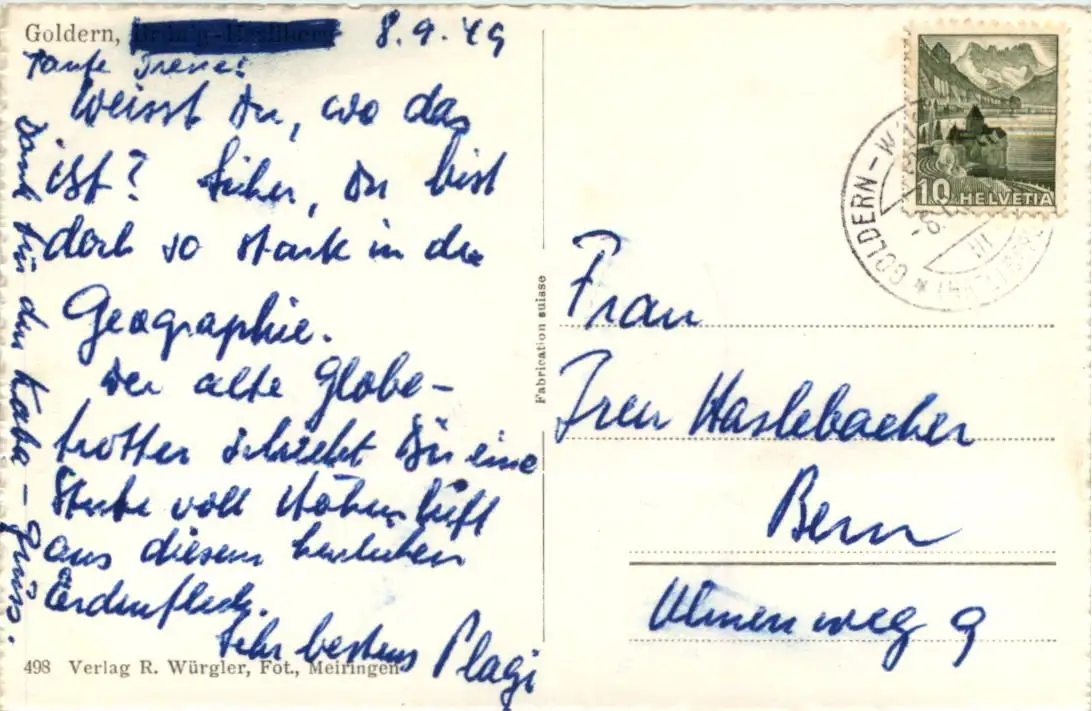 Goldern, 8.9.49
Tante Irene:
Weisst Du, wo das
ist? Sicher, Du bist
doch so stark in der
Geographie.
Der alte Globe-
trotter schickt Dir eine
Stube voll Höhenluft
aus diesem herrlichen
Erdenfleck.
Sehr bestens Plagi
Dank für den Kaba-Gruss.
498 Verlag R. Würgler, Fot., Meiringen
Fabrication suisse
10 HELVETIA
GOLDERN-W
Frau
Iren Haslebacher
Bern
Ulmenweg 9